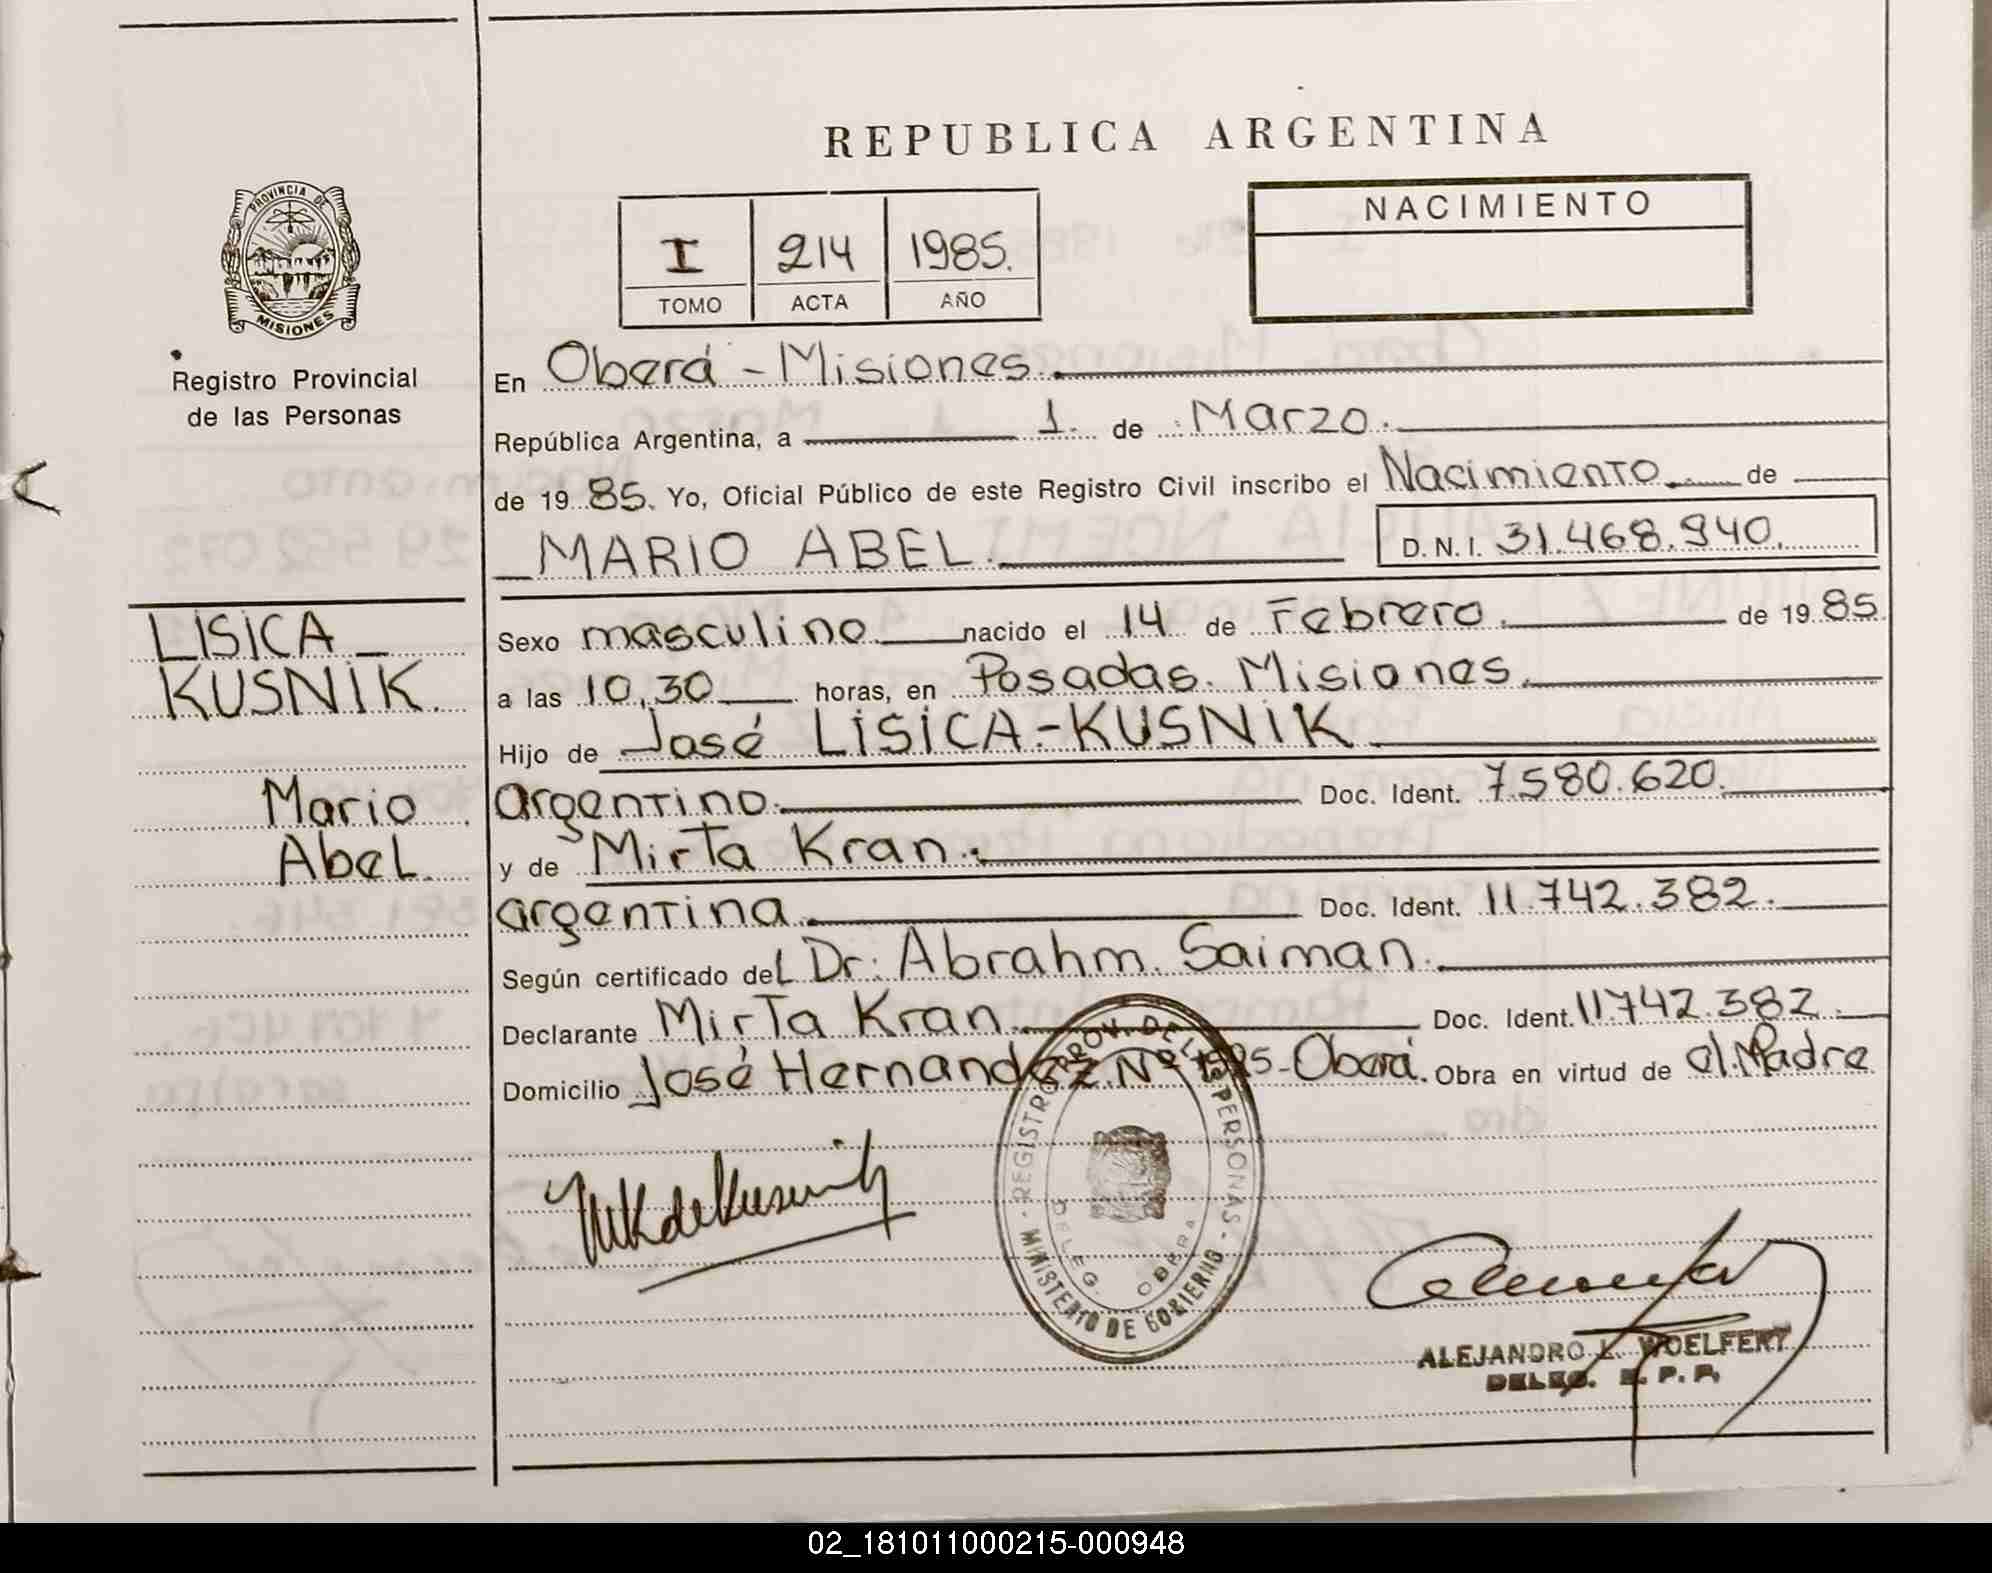 REPUBLICA ARGENTINA
PROVINCIA DE
MISIONES
Registro Provincial
de las Personas
I 214 1985.
TOMO ACTA AÑO
NACIMIENTO
En Oberá - Misiones.
República Argentina, a 1. de Marzo.
de 1985. Yo, Oficial Público de este Registro Civil inscribo el Nacimiento de
MARIO ABEL. D. N. I. 31.468.940.
LISICA_
KUSNIK.
Mario
Abel.
Sexo masculino nacido el 14 de Febrero. de 1985
a las 10,30 horas, en Posadas. Misiones.
Hijo de José LISICA-KUSNIK.
argentino. Doc. Ident. 7.580.620.
y de Mirta Kran.
argentina. Doc. Ident. 11.742.382.
Según certificado del Dr: Abrahm. Saiman.
Declarante Mirta Kran. Doc. Ident. 11742.382.
Domicilio José Hernandez Nº -Oberá. Obra en virtud de el. Madre
REGISTRO PROV. DE LAS PERSONAS
DELEG. OBERA
MINISTERIO DE GOBIERNO
ALEJANDRO L. WOELFERT
DELEG. R. P. P.
02_181011000215-000948